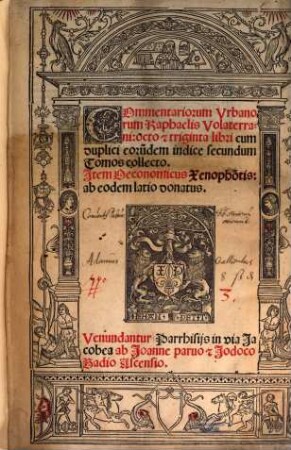 COmmentariorum Vrbano
rum Raphaelis Volaterra
ni: octo & triginta libri cum
duplici eorūdem indice secundum
Tomos collecto.
Item Oeconomicus Xenophōtis:
ab eodem latio donatus.
Adamus
8
3
Venundantur Parrhisijs in via Ja
cobea ab Joanne paruo & Jodoco
Badio Ascensio.